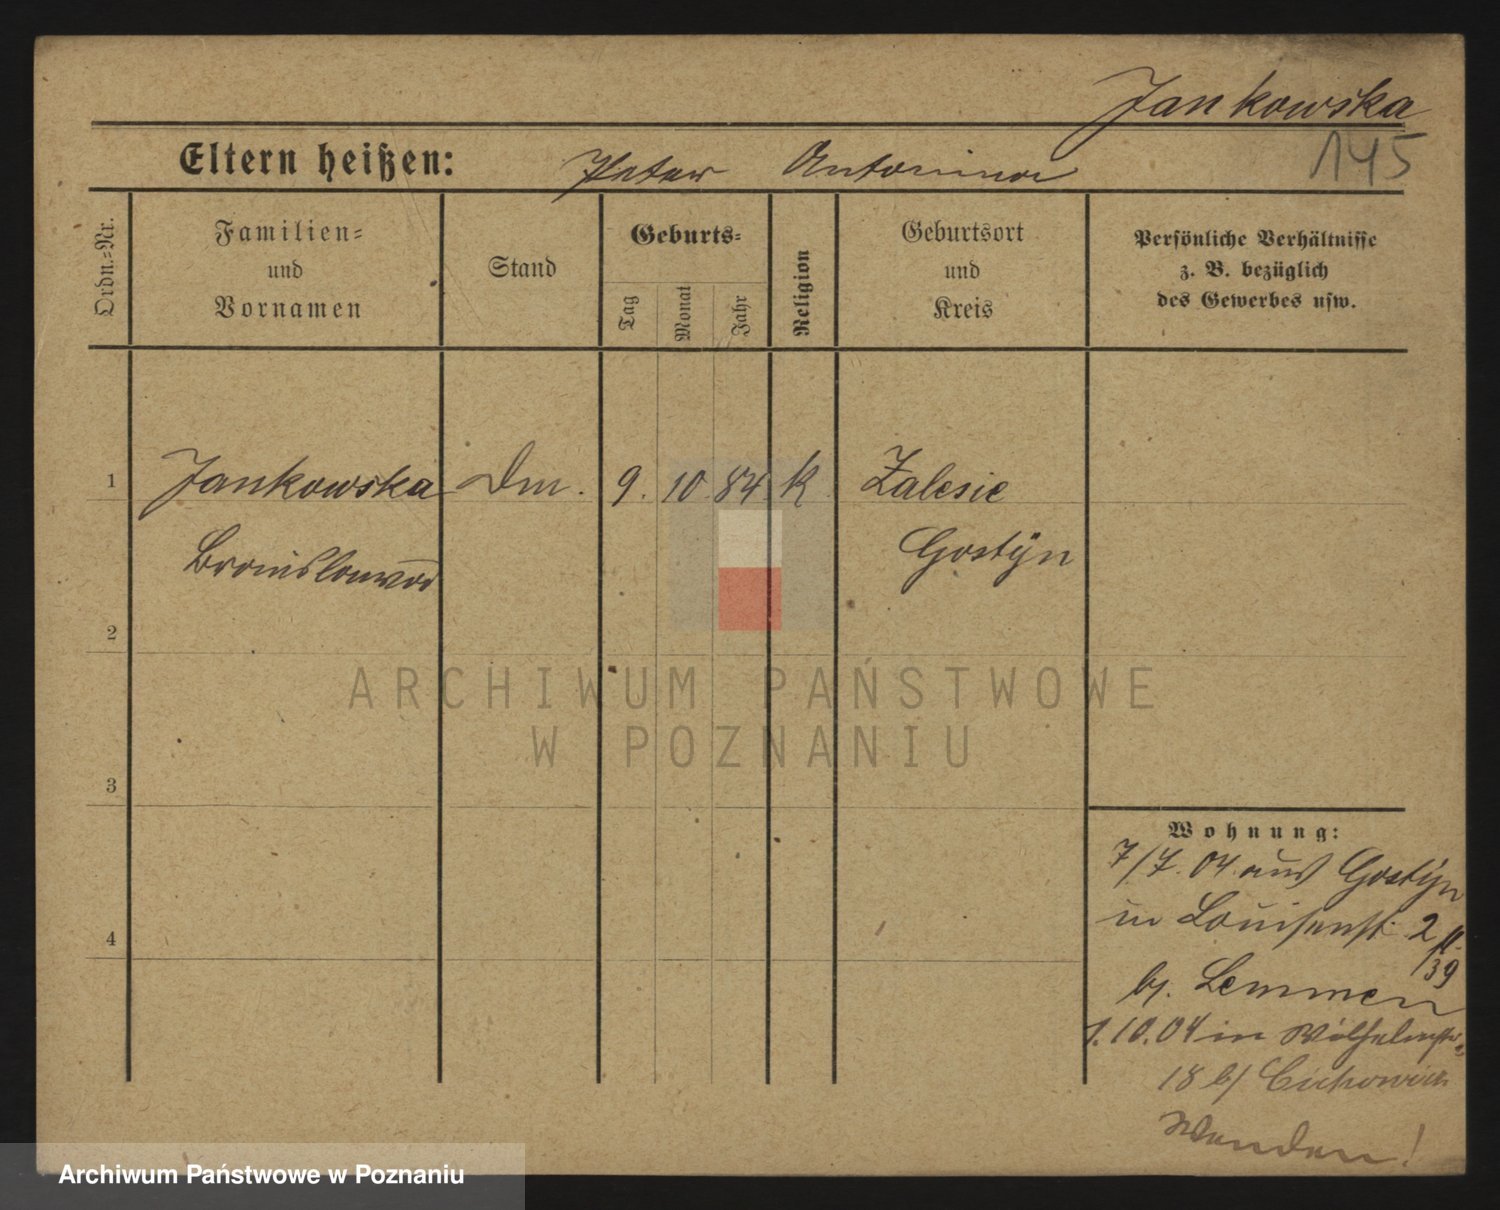 Jankowska
145
Eltern heißen: Peter Antonina
Ordn.-Nr.
Familien-
und
Vornamen
Stand
Geburts-
Tag
Monat
Jahr
Religion
Geburtsort
und
Kreis
Persönliche Verhältnisse
z. B. bezüglich
des Gewerbes usw.
1 Jankowska Dm. 9. 10. 84. k Zalesie
Bronislawa Gostÿn
2
3
4
ARCHIWUM PAŃSTWOWE
W POZNANIU
Wohnung:
7/7. 04. aus Gostÿn
in Louisenst. 2
39
bj. Lemmen
1.10.04 in Wilhelmstr.
18 b/
Wenden!
Archiwum Państwowe w Poznaniu